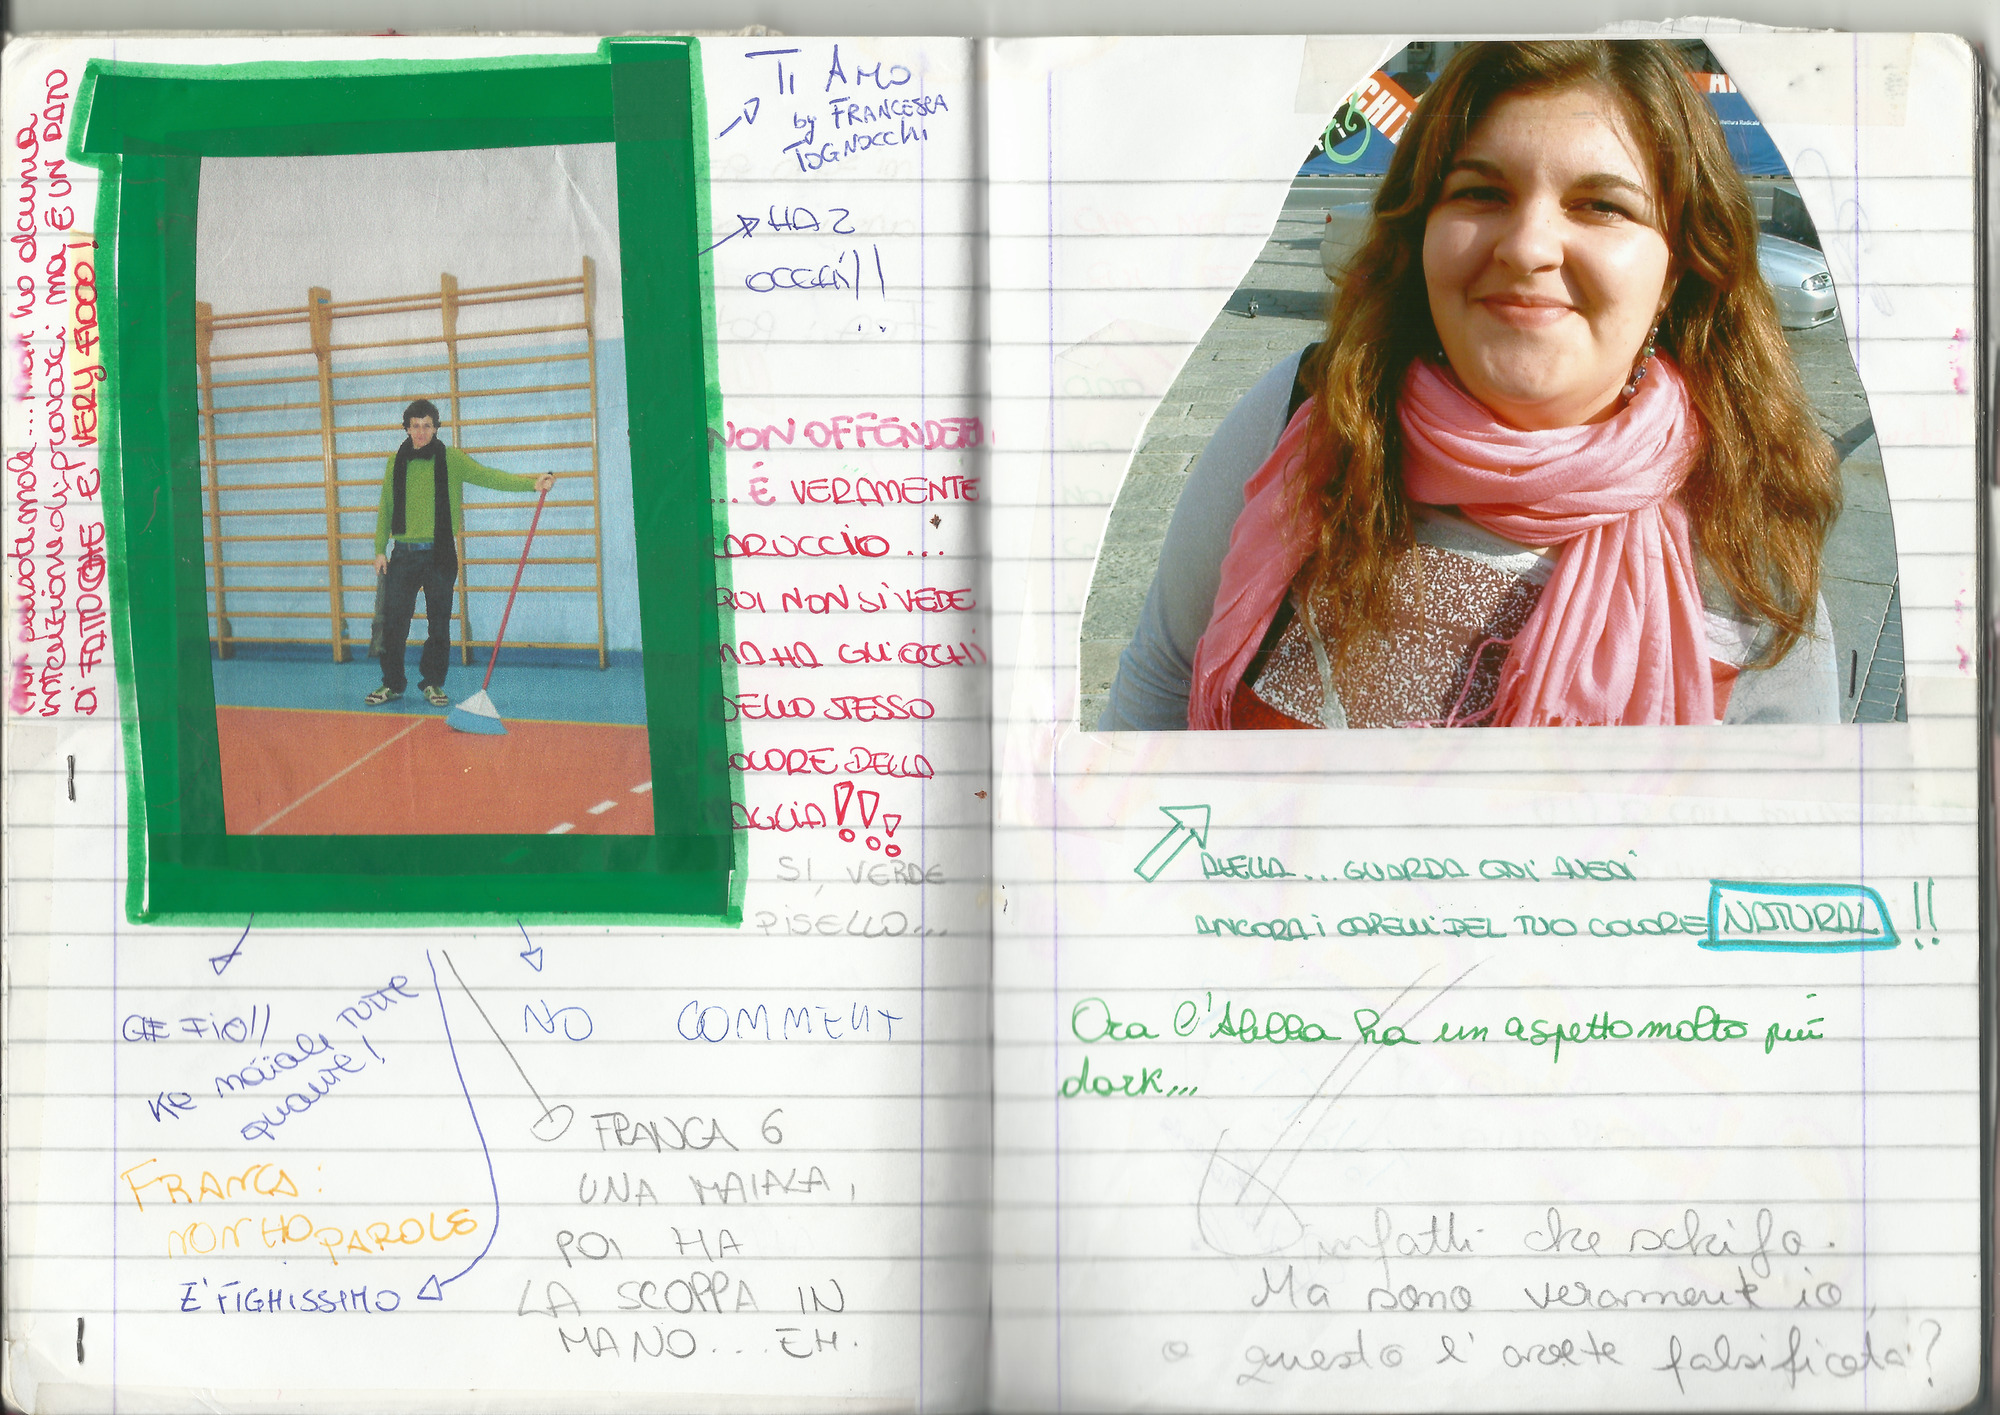 non ho alcuna
intenzione di provarci ma È UN DATO
DI FATTO CHE E' VERY FICO!
TI AMO
by FRANCESCA
TOGNOCCHI
HA 2
OCCHI!!
NON OFFENDETEVI
... È VERAMENTE
CARUCCIO ...
QUI NON SI VEDE
MA HA GLI OCCHI
DELLO STESSO
COLORE DELLA
MAGLIA!!!
SI, VERDE
PISELLO...
CHE FIO!!
KE MAIALE TUTTE
QUANTE!
NO COMMENT
FRANCA 6
UNA MAIALA,
POI HA
LA SCOPPA IN
MANO... EH.
FRANCA:
NON HO PAROLE
E' FIGHISSIMO
CHI
Cultura Radicale
... GUARDA QUI AVEVI
ANCORA I CAPELLI DEL TUO COLORE NATURAL!!
Ora l'Alella ha un aspetto molto più
dark...
infatti che schifo.
Ma sono veramente io,
o questo l'avete falsificata?